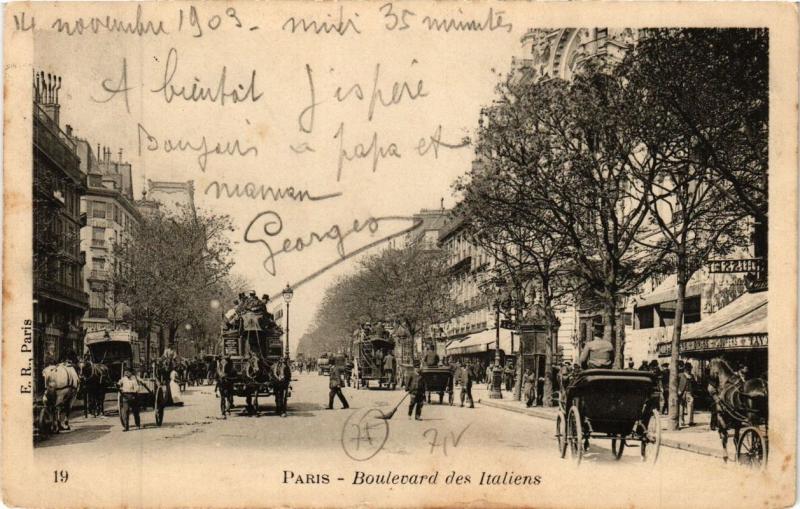 14 novembre 1903 - midi 35 minutes
A bientôt j'espère
Bonjour à papa et
maman
Georges
E. R., Paris
75
19
PARIS - Boulevard des Italiens